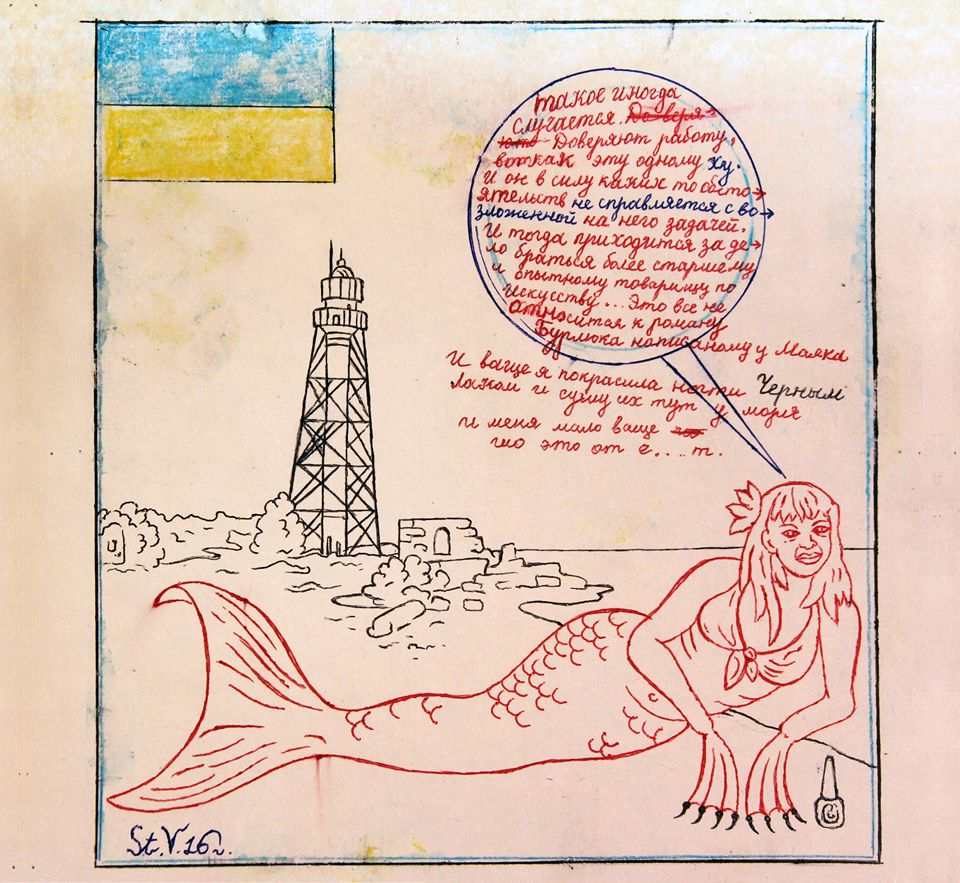 такое иногда
случается. Доверя-
ють Доверяют работу,
вот как эту одному ху.
И он в силу каких то обсто→
ятельств не справляется с во→
зложенной на него задачей.
И тогда приходится за де→
ло браться более старшему
и опытному товарищу по
искусству... Это все не
относится к роману
Бурмюка написаному у Маяка
И ваще я покрасила ногти Черным
Лаком и сушу их тут у моря
и меня мало ваще
што это от е.... т.
St.V.16г.